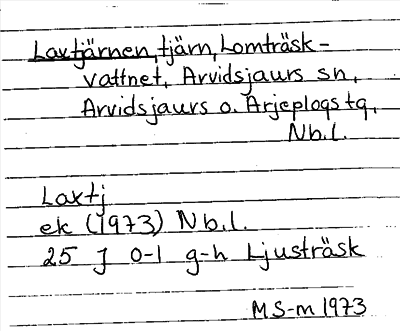 Laxtjärnen, tjärn, Lomträsk-
vattnet, Arvidsjaurs sn,
Arvidsjaurs o. Arjeplogs tg,
Nb.l.
Laxtj
ek (1973) Nb.l.
25 J 0-1 g-h Ljusträsk
MS-m 1973